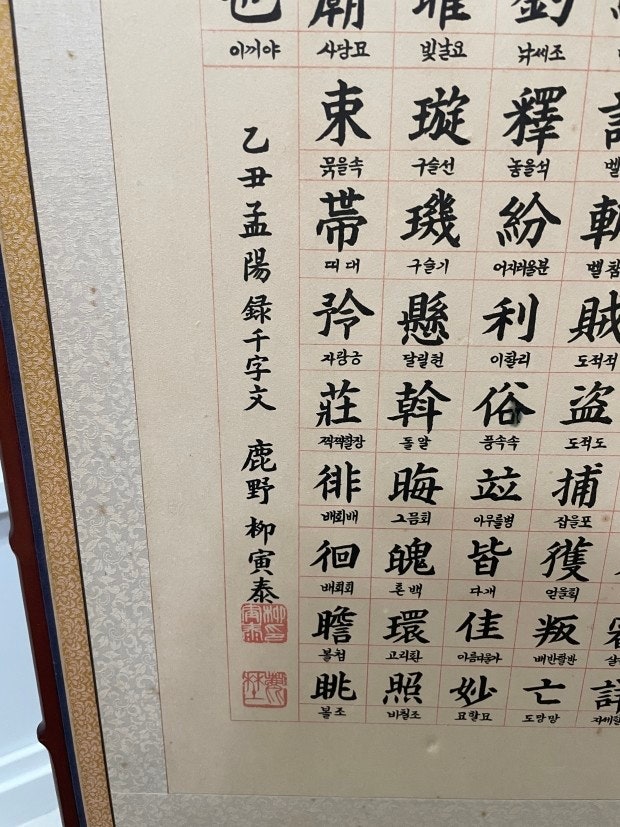 也 廟
이끼야 사당묘 빛날요 낚씨조
束 璇 釋
묶을속 구슬선 놓을석 벨
帶 璣 紛 斬
띠대 구슬기 어지러울분 벨참
矜 懸 利 賊
자랑긍 달릴현 이할리 도적적
莊 斡 俗 盜
씩씩할장 돌알 풍속속 도적도
徘 晦 竝 捕
배회배 그믐회 아무를병 잡을포
徊 魄 皆 獲
배회회 혼백 다개 얻을획
瞻 環 佳 叛
볼첨 고리환 아름다울가 배반할반
眺 照 妙 亡 詳
볼조 비칠조 묘할묘 도망망 자세할
乙丑孟陽錄千字文 鹿野 柳寅泰